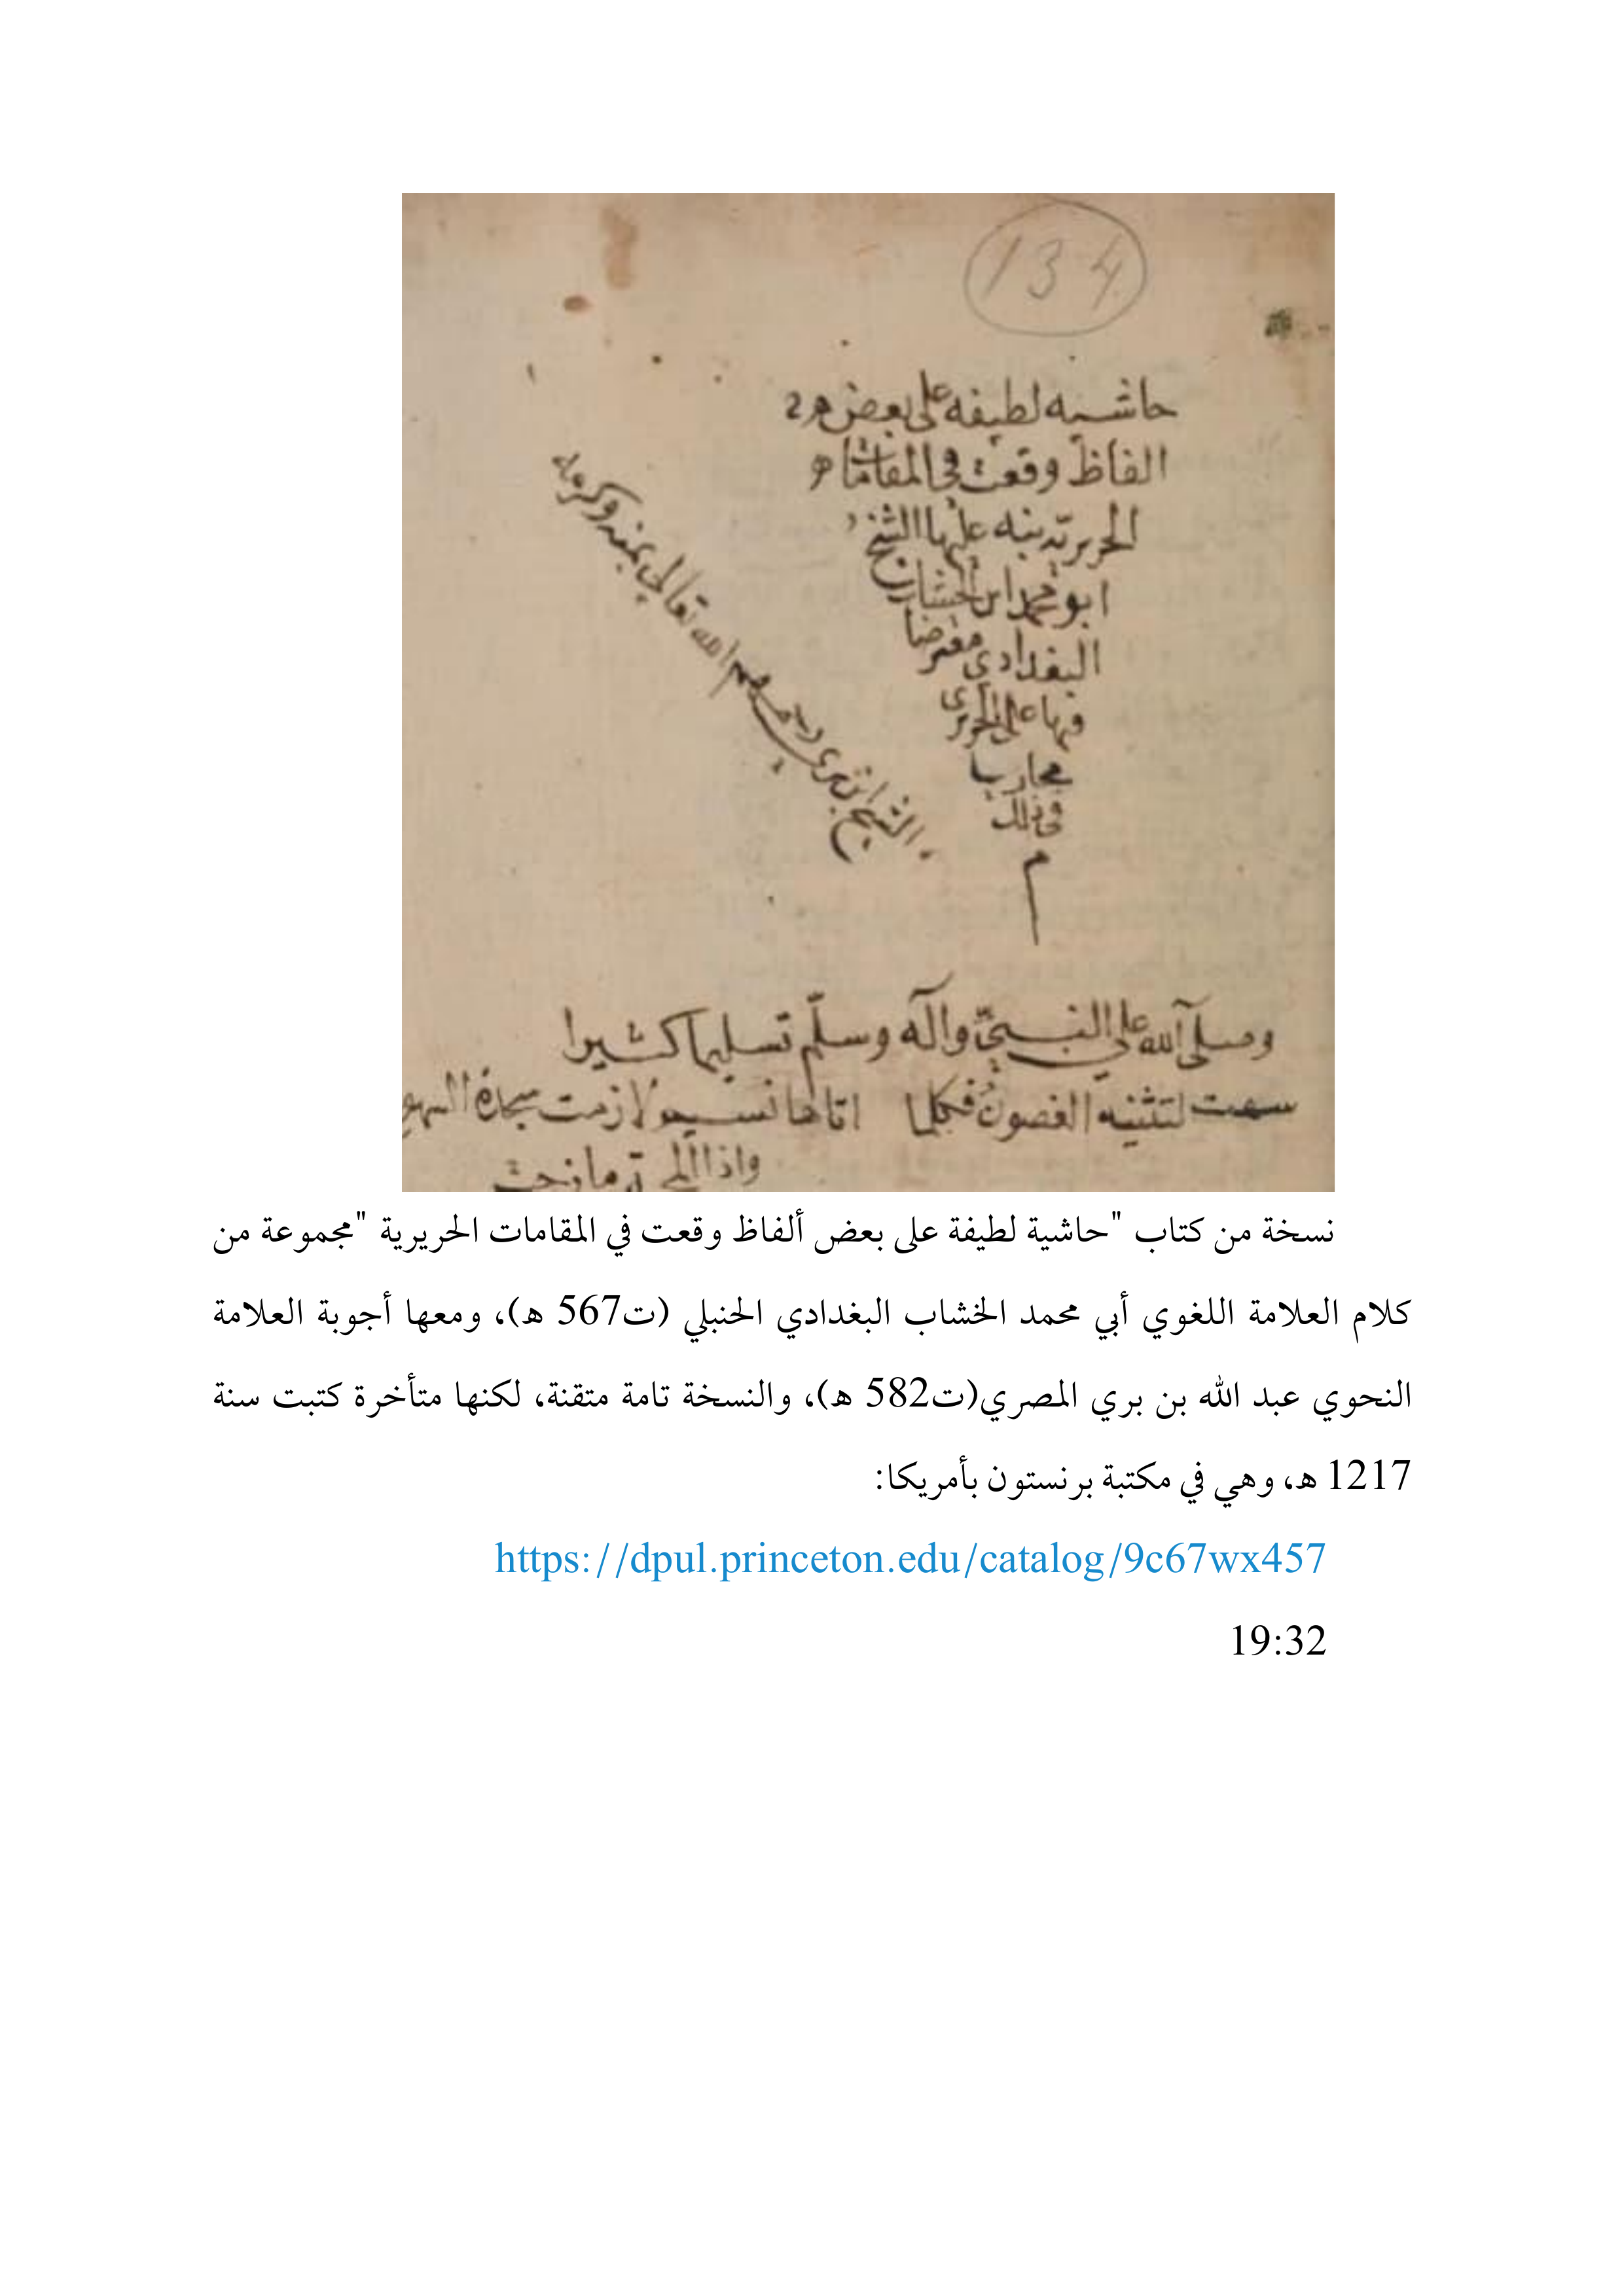 134
حاشيه لطيفه على بعض
الفاظ وقعت في المقامات
الحريريّه نبه عليها الشيخ
ابو محمد ابن الخشاب
البغدادى معترضا
فيها على الحريرى
مجاوب
فى ذلك
م
الشيخ ابن برى رحمهم الله تعالى بمنه وكرمه
وصلى الله على النبيّ وآله وسلّم تسليما كثيرا
سعت لتثنيه الغصون فكلما اتاها نسيم لازمت سجدة السهو
واذا
نسخة من كتاب "حاشية لطيفة على بعض ألفاظ وقعت في المقامات الحريرية "مجموعة من
كلام العلامة اللغوي أبي محمد الخشاب البغدادي الحنبلي (ت567 ه)، ومعها أجوبة العلامة
النحوي عبد الله بن بري المصري(ت582 ه)، والنسخة تامة متقنة، لكنها متأخرة كتبت سنة
1217 ه، وهي في مكتبة برنستون بأمريكا:
https://dpul.princeton.edu/catalog/9c67wx457
19:32